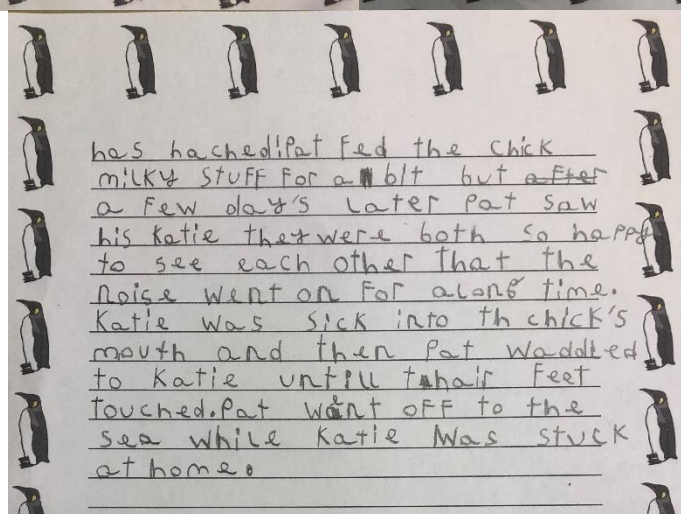 has hached!Pat Fed the chick
milky stuff for a bit but after
a few day's later Pat saw
his Katie they were both so happy
to see each other that the
noise went on for along time.
Katie was sick into th chick's
mouth and then Pat waddled
to Katie untill thair feet
touched.Pat went off to the
sea while Katie was stuck
at home.